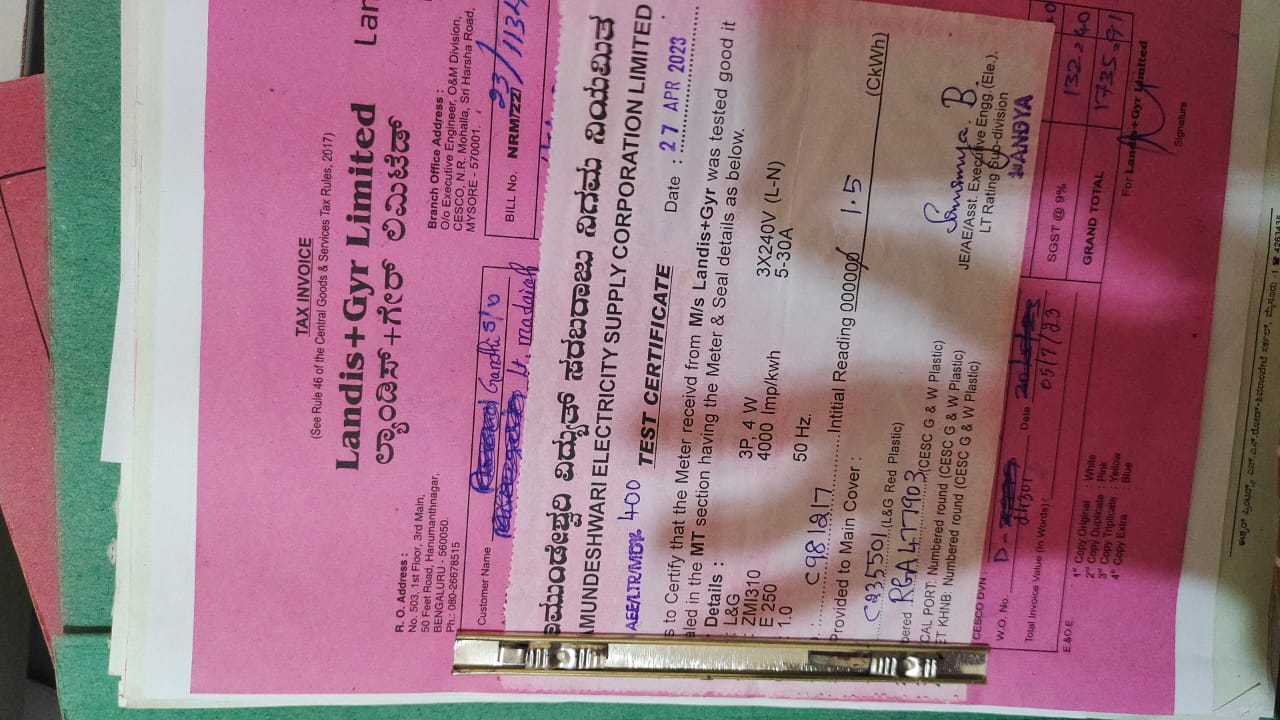 TAX INVOICE
(See Rule 46 of the Central Goods & Services Tax Rules, 2017)
Landis+Gyr Limited Lan
ಲ್ಯಾಂಡಿಸ್+ಗೇರ್ ಲಿಮಿಟೆಡ್
R. O. Address :
No. 503, 1st Floor, 3rd Main,
50 Feet Road, Hanumanthnagar,
BENGALURU - 560050.
Ph.: 080-26678515
Branch Office Address :
O/o Executive Engineer, O&M Division,
CESCO, N.R. Mohalla, Sri Harsha Road,
MYSORE - 570001.
Customer Name Gandhi S/o
Lt. Madaiah
BILL No. NRM/ZZZ/ 23/1134
ಾಮುಂಡೇಶ್ವರಿ ವಿದ್ಯುತ್ ಸರಬರಾಜು ನಿಗಮ ನಿಯಮಿತ
AMUNDESHWARI ELECTRICITY SUPPLY CORPORATION LIMITED
AEE/LTR/MDY. 400 Date : 27 APR 2023
TEST CERTIFICATE
s to Certify that the Meter receivd from M/s Landis+Gyr was tested good it
aled in the MT section having the Meter & Seal details as below.
Details :
: L&G 3P, 4 W 3X240V (L-N)
: ZMI310 4000 Imp/kwh 5-30A
: E 250
: 1.0 50 Hz.
C981217 Intitial Reading 000000/ 1.5 (CkWh)
Provided to Main Cover :
C235501 (L&G Red Plastic)
bered RGA477903 (CESC G & W Plastic)
CAL PORT: Numbered round (CESC G & W Plastic)
ET KHNB: Numbered round (CESC G & W Plastic)
Sowmya. B
JE/AE/Asst. Executive Engg. (Ele.).
LT Rating Sub-division
MANDYA
CESCO DVN
W.O. No. Date
05/7/23
Total Invoice Value (in Words):
E.&O.E
1st Copy Original : White
2nd Copy Duplicate : Pink
3rd Copy Triplicate : Yellow
4th Copy Extra : Blue
SGST @ 9% 132=40
GRAND TOTAL 1735=91
For Landis+Gyr Limited
Signature